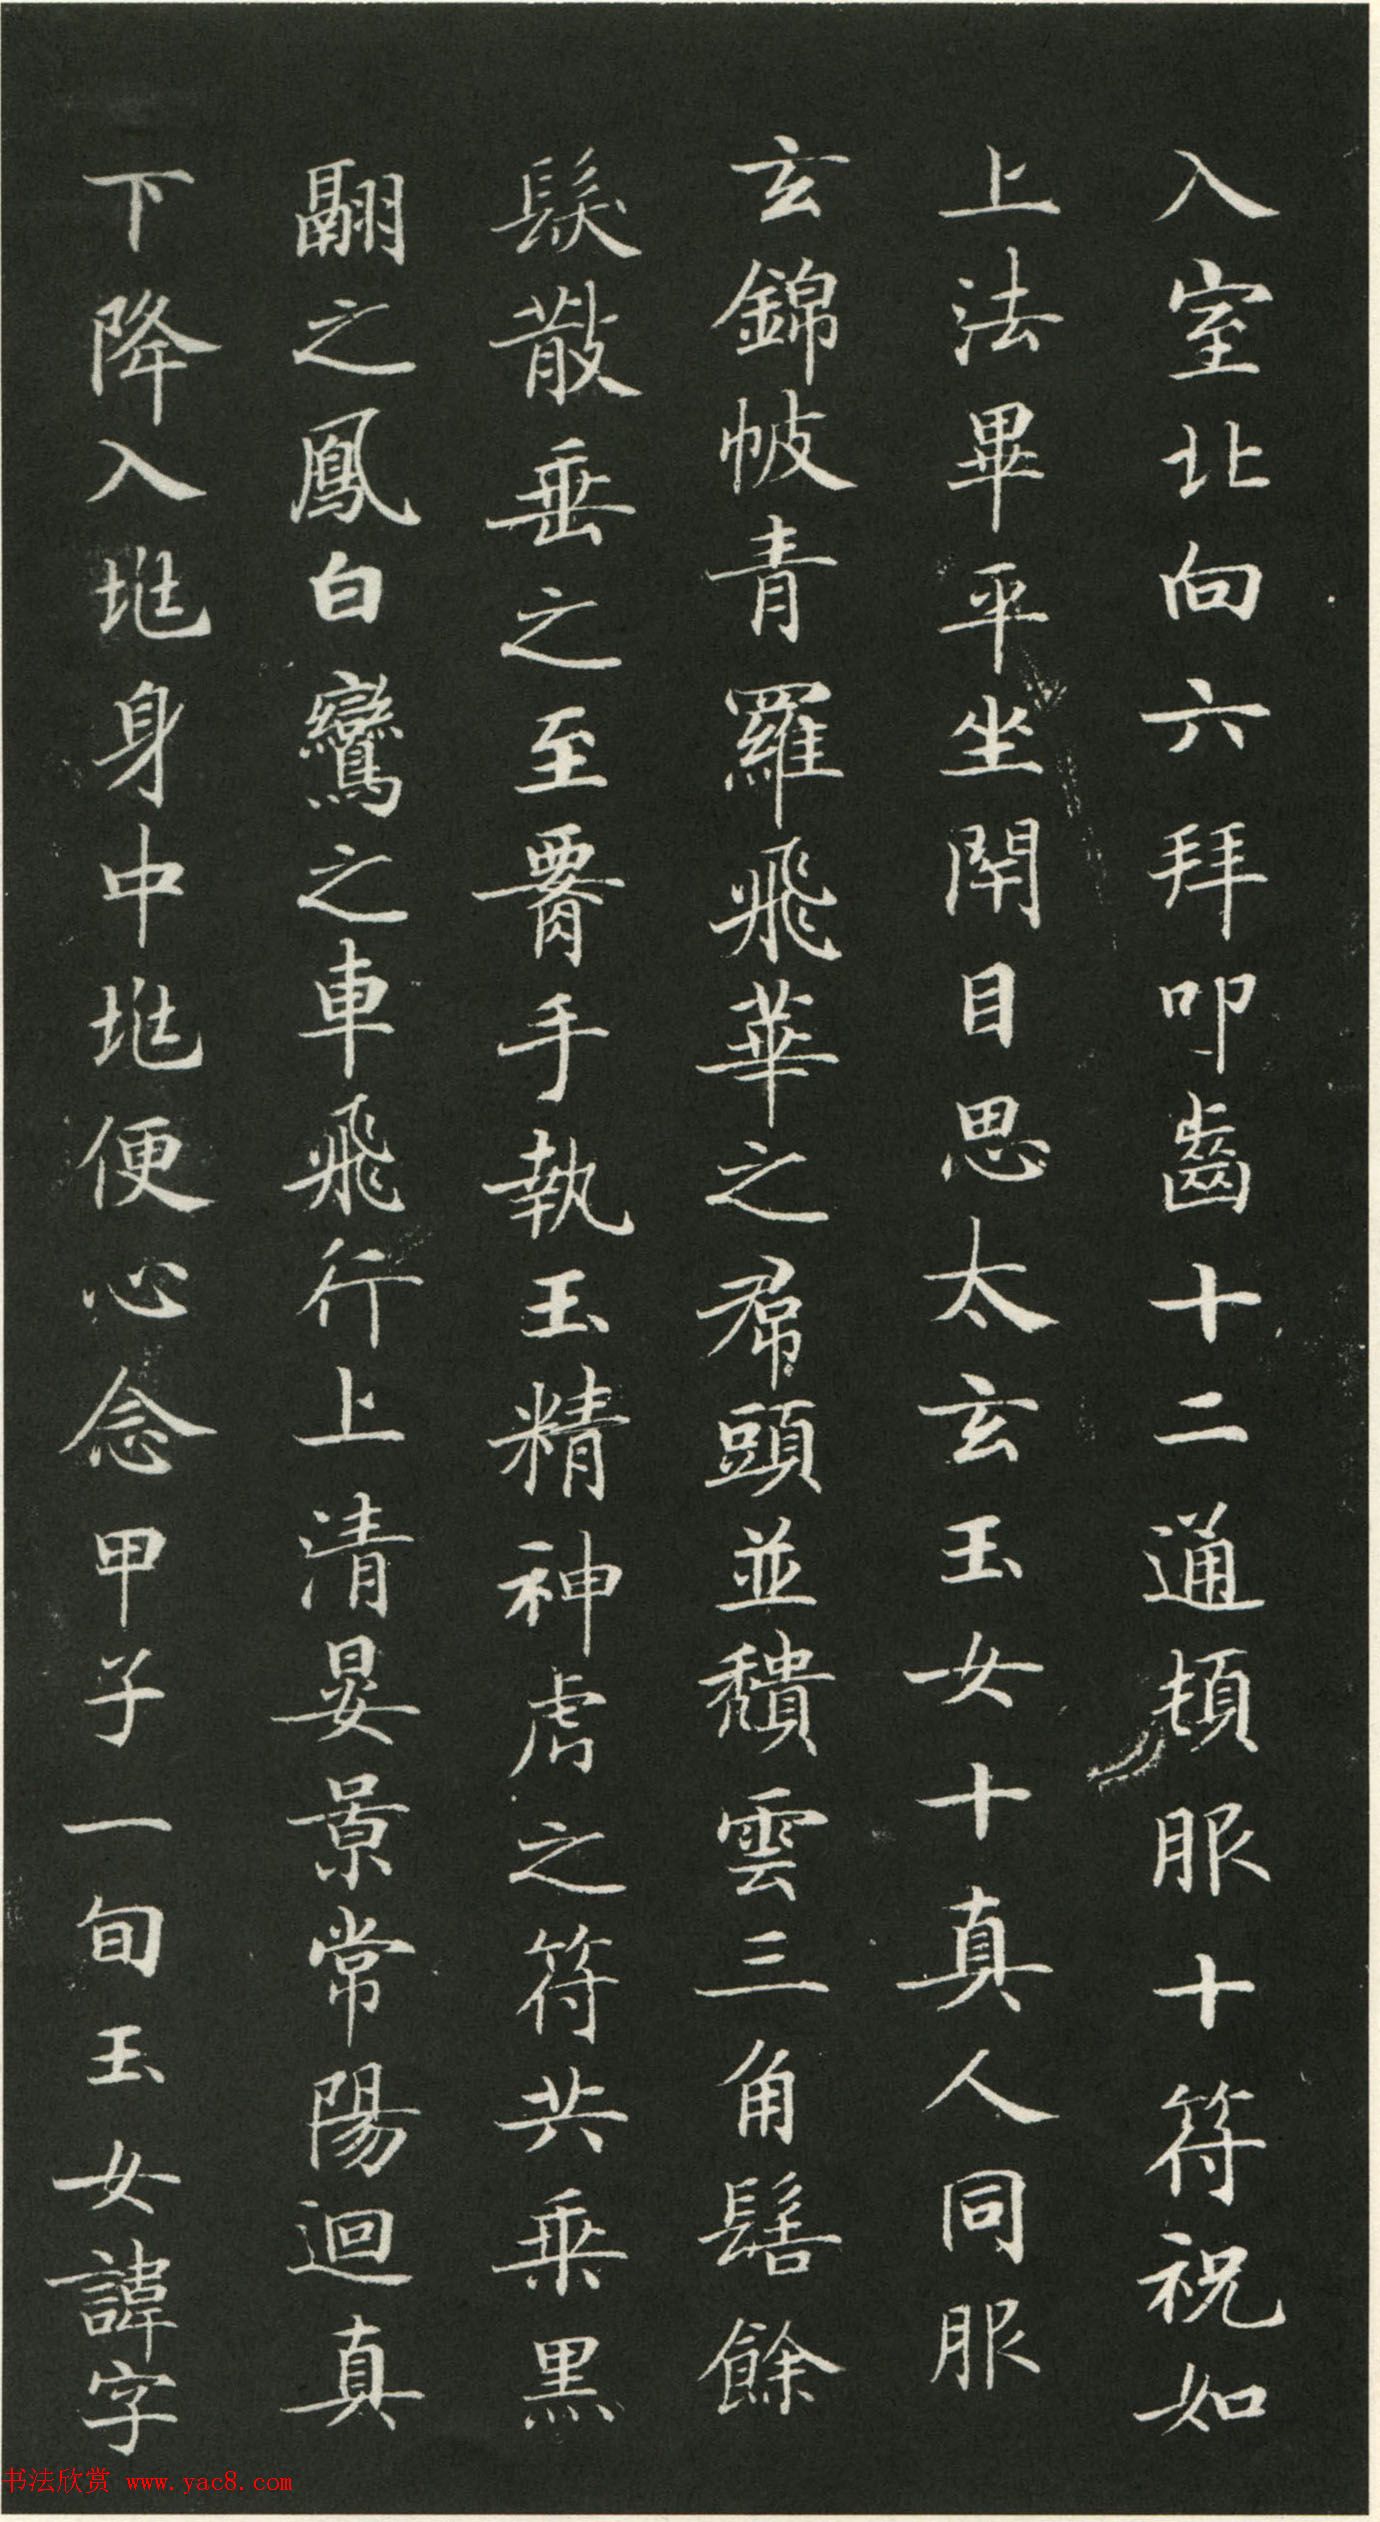 入室北向六拜叩齒十二通頓服十符祝如
上法畢平坐閇目思太玄玉女十真人同服
玄錦帔青羅飛華之帬頭並穨雲三角髻餘
髮散垂之至𦝫手執玉精神虎之符共乗黑
翮之鳳白鸞之車飛行上清晏景常陽迴真
下降入地身中地便心念甲子一旬玉女諱字
书法欣赏 www.yac8.com